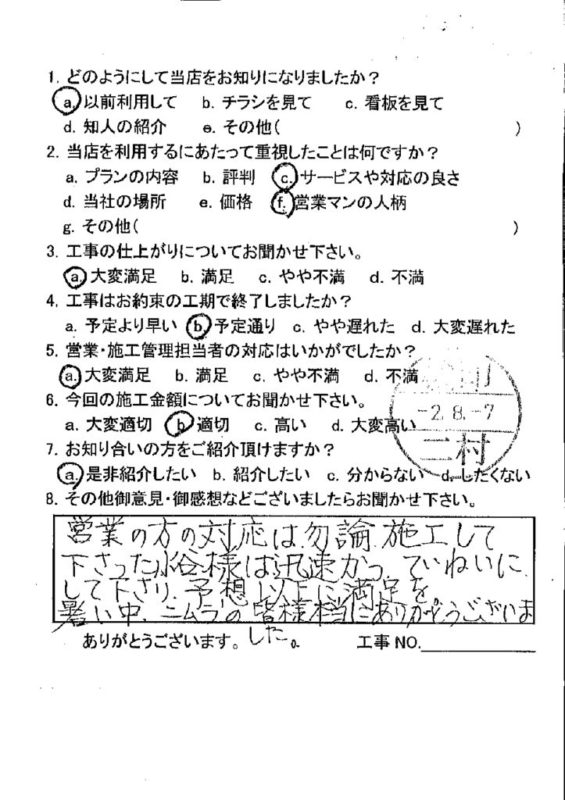 1. どのようにして当店をお知りになりましたか？
a. 以前利用して b. チラシを見て c. 看板を見て
d. 知人の紹介 e. その他( )
2. 当店を利用するにあたって重視したことは何ですか？
a. プランの内容 b. 評判 c. サービスや対応の良さ
d. 当社の場所 e. 価格 f. 営業マンの人柄
g. その他( )
3. 工事の仕上がりについてお聞かせ下さい。
a. 大変満足 b. 満足 c. やや不満 d. 不満
4. 工事はお約束の工期で終了しましたか？
a. 予定より早い b. 予定通り c. やや遅れた d. 大変遅れた
5. 営業・施工管理担当者の対応はいかがでしたか？
a. 大変満足 b. 満足 c. やや不満 d. 不満
6. 今回の施工金額についてお聞かせ下さい。
a. 大変適切 b. 適切 c. 高い d. 大変高い
-2.8.-7
二村
7. お知り合いの方をご紹介頂けますか？
a. 是非紹介したい b. 紹介したい c. 分からない d. したくない
8. その他御意見・御感想などございましたらお聞かせ下さい。
営業の方の対応は勿論、施工して
下さった水谷様は迅速かつ、ていねいに
して下さり、予想以上に満足を。
暑い中、ニムラの皆様本当にありがとうございま
した。
ありがとうございます。 工事 NO.